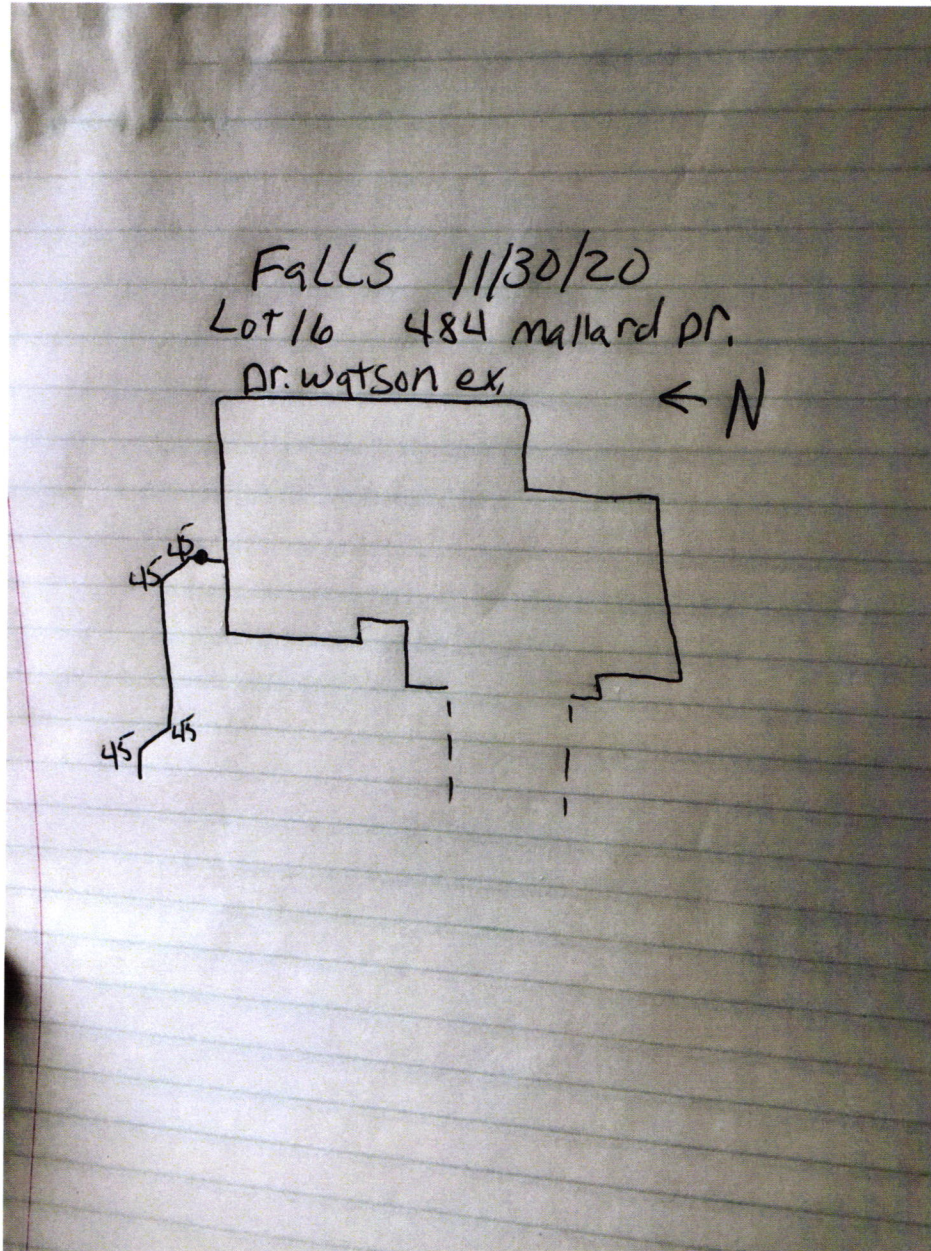 Falls 11/30/20
Lot 16 484 mallard Dr.
Dr. Watson ex,
← N
45
45
45
45